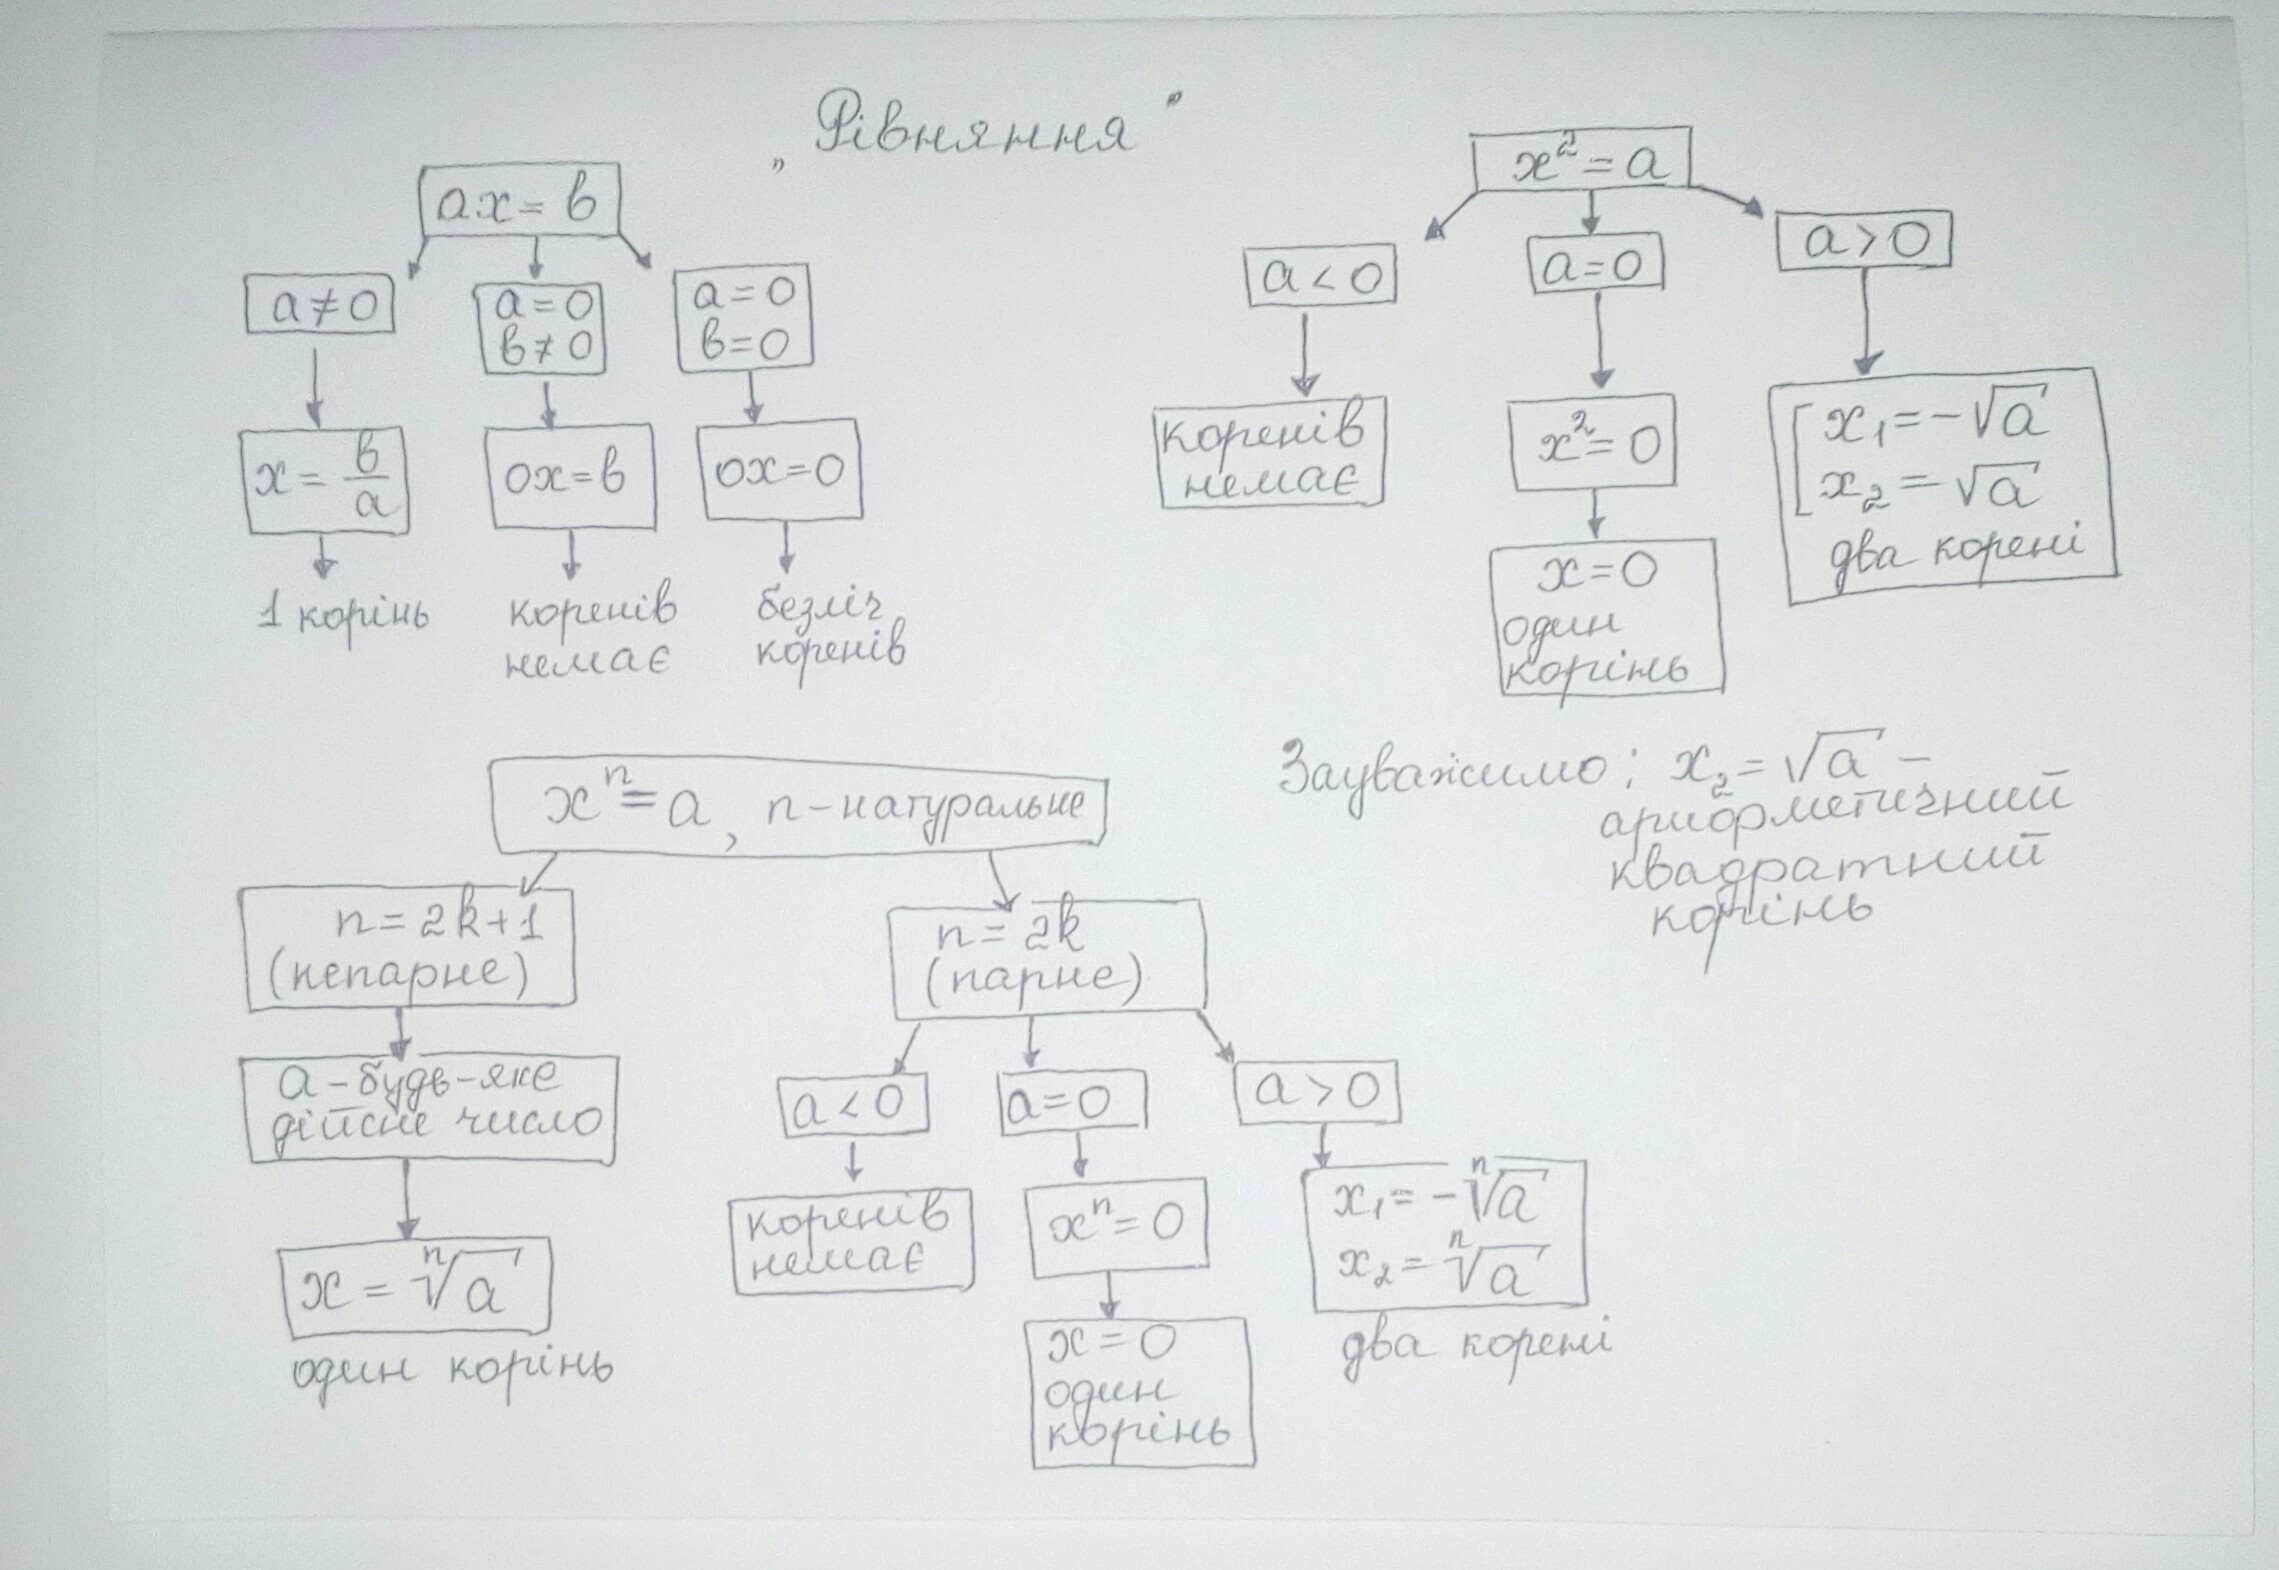 „Рівняння"
ax = b
a ≠ 0
a = 0
b ≠ 0
a = 0
b = 0
x = b/a
0x = b
0x = 0
1 корінь
коренів
немає
безліч
коренів
x² = a
a < 0
a = 0
a > 0
коренів
немає
x² = 0
x = 0
один
корінь
x₁ = -√a
x₂ = √a
два корені
Зауважимо: x₂ = √a –
арифметичний
квадратний
корінь
xⁿ = a, n - натуральне
n = 2k + 1
(непарне)
a - будь-яке
дійсне число
x = ⁿ√a
один корінь
n = 2k
(парне)
a < 0
a = 0
a > 0
коренів
немає
xⁿ = 0
x = 0
один
корінь
x₁ = -ⁿ√a
x₂ = ⁿ√a
два корені